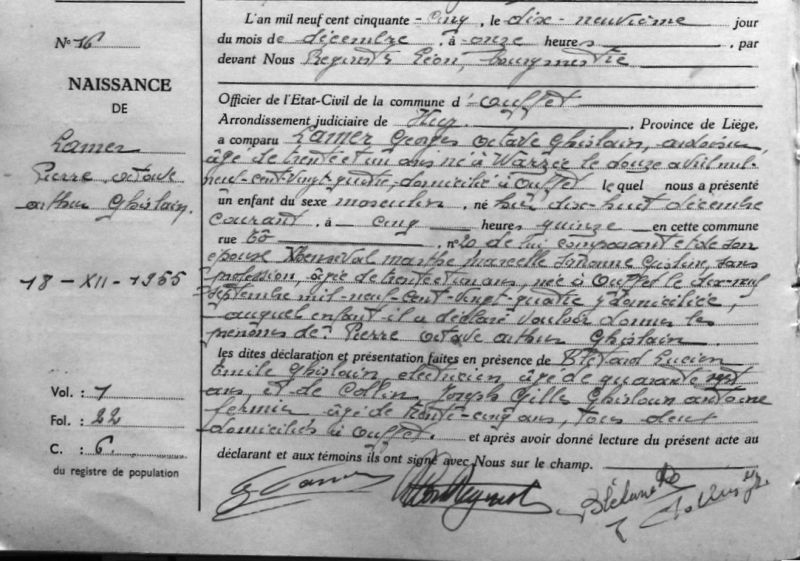 N° 16
NAISSANCE
DE
Lamer
Pierre, octave
arthur Ghislain.
18 - XII - 1955
Vol. : 1
Fol. : 22
C. : 6.
du registre de population
L'an mil neuf cent cinquante - cinq, le dix - neuvième jour
du mois de décembre, à onze heures, par
devant Nous Léon, bourgmestre
Officier de l'Etat-Civil de la commune d'Ouffet
Arrondissement judiciaire de Huy, Province de Liège,
a comparu Lamer Georges Octave Ghislain,
âgé de trente et un ans né à Warzée le douze avril mil-
neuf-cent-vingt-quatre, domicilié à Ouffet lequel nous a présenté
un enfant du sexe masculin, né hier dix-huit décembre
courant, à cinq heures quinze en cette commune
rue n° 20 de lui comparant et de son
épouse marthe marcelle Ghislaine, sans
profession, âgée de trente et un ans, née à Ouffet le dix-neuf
septembre mil-neuf-cent-vingt-quatre y domiciliée,
auquel enfant il a déclaré vouloir donner les
prénoms de Pierre octave arthur Ghislain.
les dites déclaration et présentation faites en présence de Lucien
Emile Ghislain, electricien, âgé de quarante sept
ans, et de Collin, Joseph Gilles Ghislain antoine
fermier âgé de trente-cinq ans, tous deux
domiciliés à Ouffet. et après avoir donné lecture du présent acte au
déclarant et aux témoins ils ont signé avec Nous sur le champ.